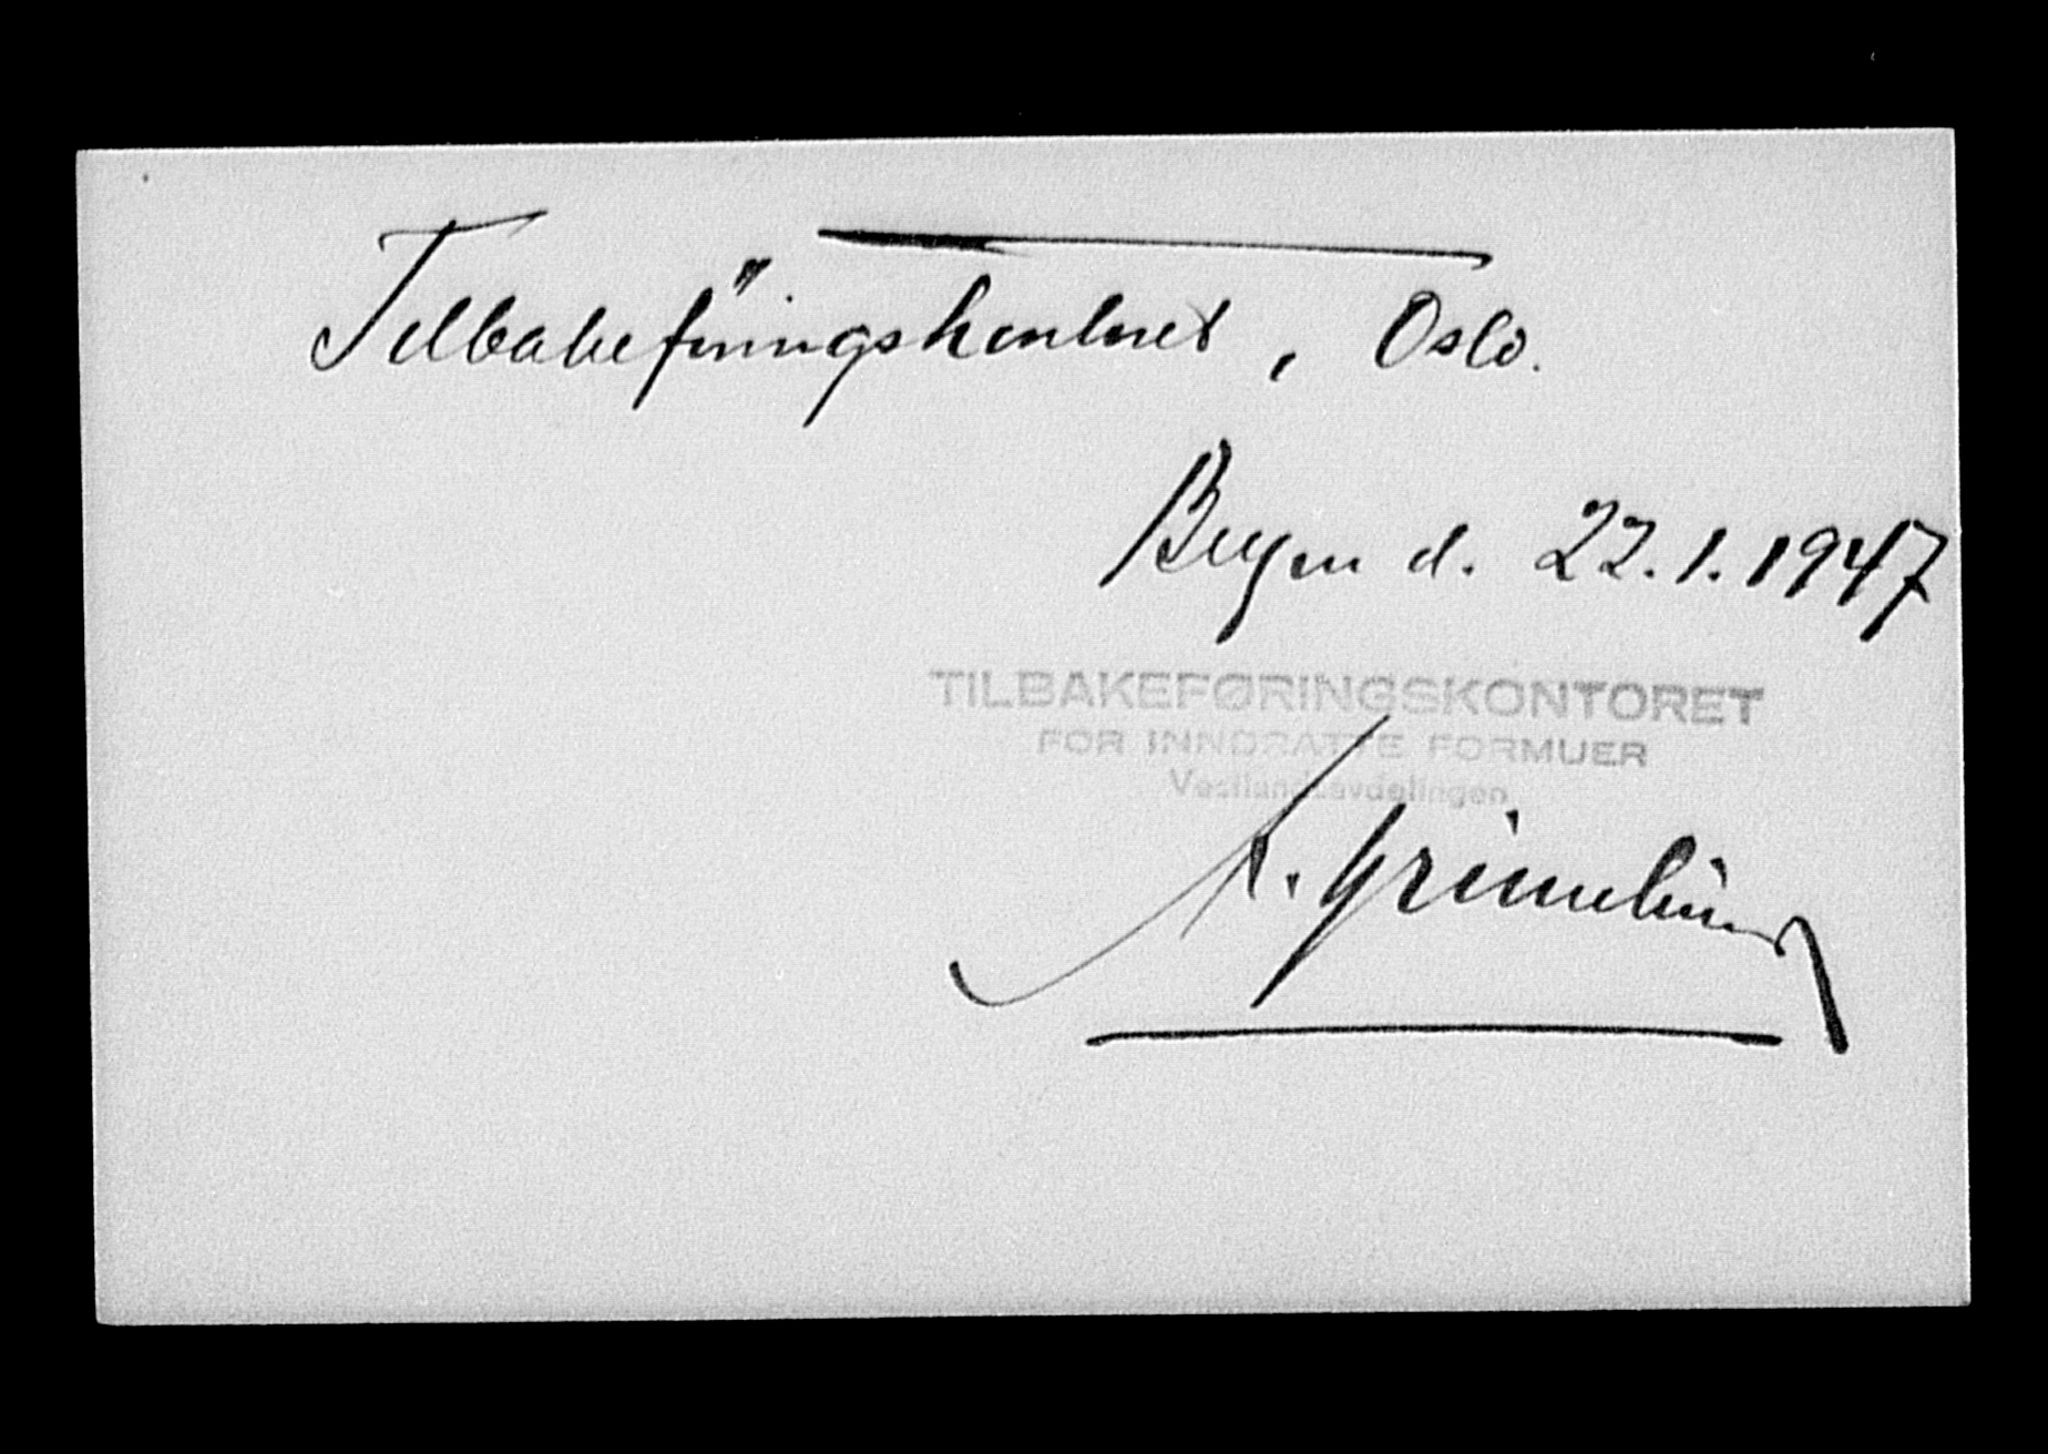 Tilbakeföringskontoret, Oslo.
Bergen d. 22.1.1947
TILBAKEFØRINGSKONTORET
FOR INNDRATTE FORMUER
Vestlandsavdelingen
K.